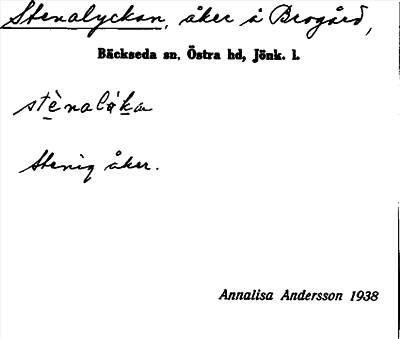 Stenalyckan, åker å Brogård,
Bäckseda sn, Östra hd, Jönk. l.
stènaløka
Stenig åker.
Annalisa Andersson 1938